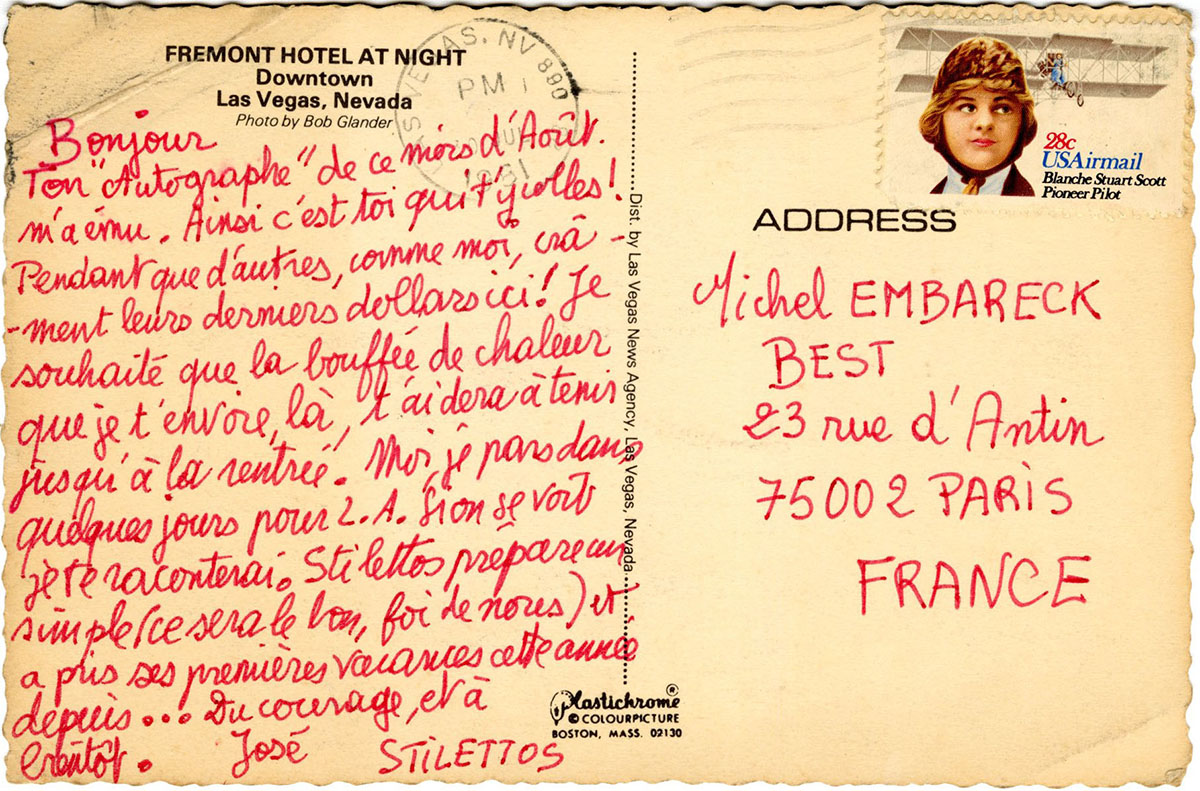 FREMONT HOTEL AT NIGHT
Downtown
Las Vegas, Nevada
Photo by Bob Glander
Bonjour
Ton "Autographe" de ce mois d'Août.
m'a ému. Ainsi c'est toi qui t'y colles!
Pendant que d'autres, comme moi, crâ-
-ment leurs derniers dollars ici! Je
souhaité que la bouffée de chaleur
que je t'envoie, là, t'aidera à tenir
jusqu'à la rentrée. Moi, je pars dans
quelques jours pour L.A. Si on se voit
je te raconterai. Stilettos prépare un
simple (ce sera le bon, foi de nores) et
a pris ses premières vacances cette année
depuis... Du courage, et à
bientôt. José STILETTOS
Dist. by Las Vegas News Agency, Las Vegas, Nevada
Plastichrome®
© COLOURPICTURE
BOSTON, MASS. 02130
LAS VEGAS, NV 890
PM
1981
28c
USAirmail
Blanche Stuart Scott
Pioneer Pilot
ADDRESS
Michel EMBARECK
BEST
23 rue d'Antin
75002 PARIS
FRANCE